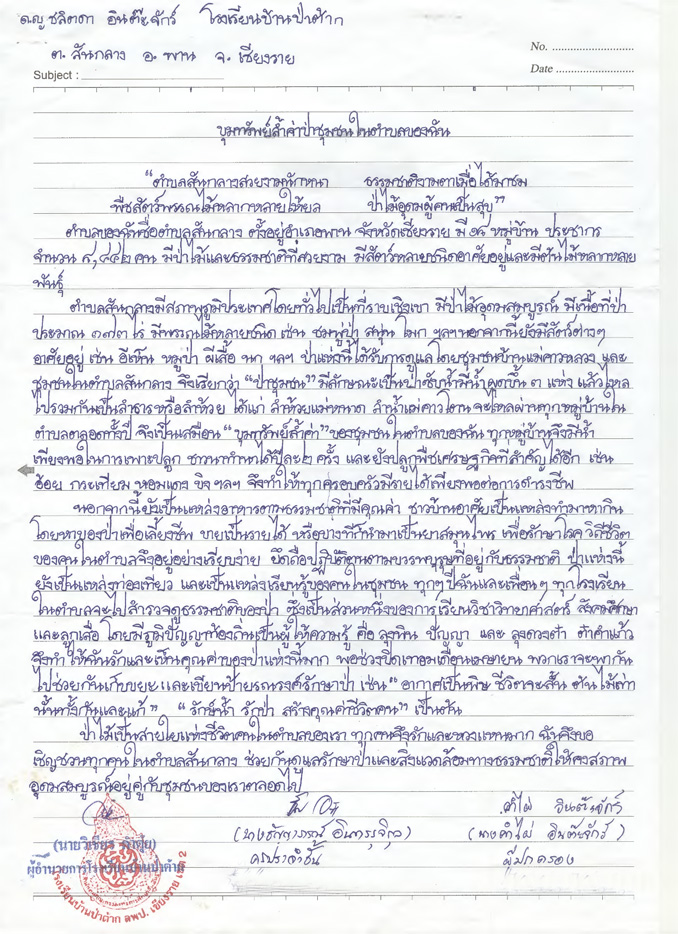 ด.ญ ชลิตดา อินต๊ะจักร์ โรงเรียนบ้านป่าต้าก
ต. สันกลาง อ. พาน จ. เชียงราย
No. ..........................
Date ..........................
Subject :
ขุมทรัพย์ล้ำค่าป่าชุมชนในตำบลของฉัน
"ตำบลสันกลางสวยงามหนักหนา ธรรมชาติงามตาเมื่อได้มาชม
พืชสัตว์พรรณไม้หลากหลายให้ยล ป่าไม้อุดมผู้คนเป็นสุข"
ตำบลของฉันชื่อตำบลสันกลาง ตั้งอยู่อำเภอพาน จังหวัดเชียงราย มี ๑๕ หมู่บ้าน ประชากร
จำนวน ๙,๔๕๒ คน มีป่าไม้และธรรมชาติที่สวยงาม มีสัตว์หลายชนิดอาศัยอยู่และมีต้นไม้หลากหลาย
พันธุ์
ตำบลสันกลางมีสภาพภูมิประเทศโดยทั่วไปเป็นที่ราบเชิงเขา มีป่าไม้อุดมสมบูรณ์ มีเนื้อที่ป่า
ประมาณ ๑๗๓ ไร่ มีพรรณไม้หลายชนิด เช่น ชมพู่ป่า สนุ่น โมก ฯลฯ นอกจากนี้ยังมีสัตว์ต่างๆ
อาศัยอยู่ เช่น อีเห็น หมูป่า ผีเสื้อ นก ฯลฯ ป่าแห่งนี้ได้รับการดูแลโดยชุมชนบ้านแม่คาวหลวง และ
ชุมชนในตำบลสันกลาง จึงเรียกว่า "ป่าชุมชน" มีลักษณะเป็นป่าซับน้ำมีน้ำผุดขึ้น ๓ แห่ง แล้วไหล
ไปรวมกันเป็นลำธารหรือลำห้วย ได้แก่ ลำห้วยแม่หนาด ลำน้ำแม่คาวโตนจะไหลผ่านทุกหมู่บ้านใน
ตำบลตลอดทั้งปี จึงเป็นเสมือน "ขุมทรัพย์ล้ำค่า" ของชุมชนในตำบลของฉัน ทุกหมู่บ้านจึงมีน้ำ
เพียงพอในการเพาะปลูก ชาวนาทำนาได้ปีละ ๒ ครั้ง และยังปลูกพืชเศรษฐกิจที่สำคัญได้อีก เช่น
อ้อย กระเทียม หอมแดง ขิง ฯลฯ จึงทำให้ทุกครอบครัวมีรายได้เพียงพอต่อการดำรงชีพ
นอกจากนี้ยังเป็นแหล่งอาหารตามธรรมชาติที่มีคุณค่า ชาวบ้านอาศัยเป็นแหล่งทำมาหากิน
โดยหาของป่าเพื่อเลี้ยงชีพ ขายเป็นรายได้ หรือบางทีก็นำมาเป็นยาสมุนไพร เพื่อรักษาโรค วิถีชีวิต
ของคนในตำบลจึงอยู่อย่างเรียบง่าย ยึดถือปฏิบัติตนตามบรรพบุรุษที่อยู่กับธรรมชาติ ป่าแห่งนี้
ยังเป็นแหล่งท่องเที่ยว และเป็นแหล่งเรียนรู้ของคนในชุมชน ทุกๆ ปีฉันและเพื่อนๆ ทุกโรงเรียน
ในตำบลจะไปสำรวจดูธรรมชาติของป่า ซึ่งเป็นส่วนหนึ่งของการเรียนวิชาวิทยาศาสตร์ สังคมศึกษา
และลูกเสือ โดยมีภูมิปัญญาท้องถิ่นเป็นผู้ให้ความรู้ คือ ลุงหิน ปัญญา และ ลุงดวงต๋า ต๋าคำแก้ว
จึงทำให้ฉันรักและเห็นคุณค่าของป่าแห่งนี้มาก พอช่วงปิดเทอมเดือนเมษายน พวกเราจะพากัน
ไปช่วยกันเก็บขยะและเขียนป้ายรณรงค์รักษาป่า เช่น "อากาศเป็นพิษ ชีวิตจะสั้น ต้นไม้เท่า
นั้นทั้งกันและแก้" "รักษ์น้ำ รักป่า สร้างคุณค่าชีวิตคน" เป็นต้น
ป่าไม้เป็นสายใยแห่งชีวิตคนในตำบลของเรา ทุกคนจึงรักและหวงแหนมาก ฉันจึงขอ
เชิญชวนทุกคนในตำบลสันกลาง ช่วยกันดูแลรักษาป่าและสิ่งแวดล้อมทางธรรมชาติให้คงสภาพ
อุดมสมบูรณ์อยู่คู่กับชุมชนของเราตลอดไป
คำไผ่ อินต๊ะจักร์
(นางคำไผ่ อินต๊ะจักร์)
ครูประจำชั้น ผู้ปกครอง
(นายวิเชียร
ผู้อำนวยการโรงเรียนบ้านป่าต้าก
โรงเรียนบ้านป่าต้าก สพป. เชียงราย เขต 2